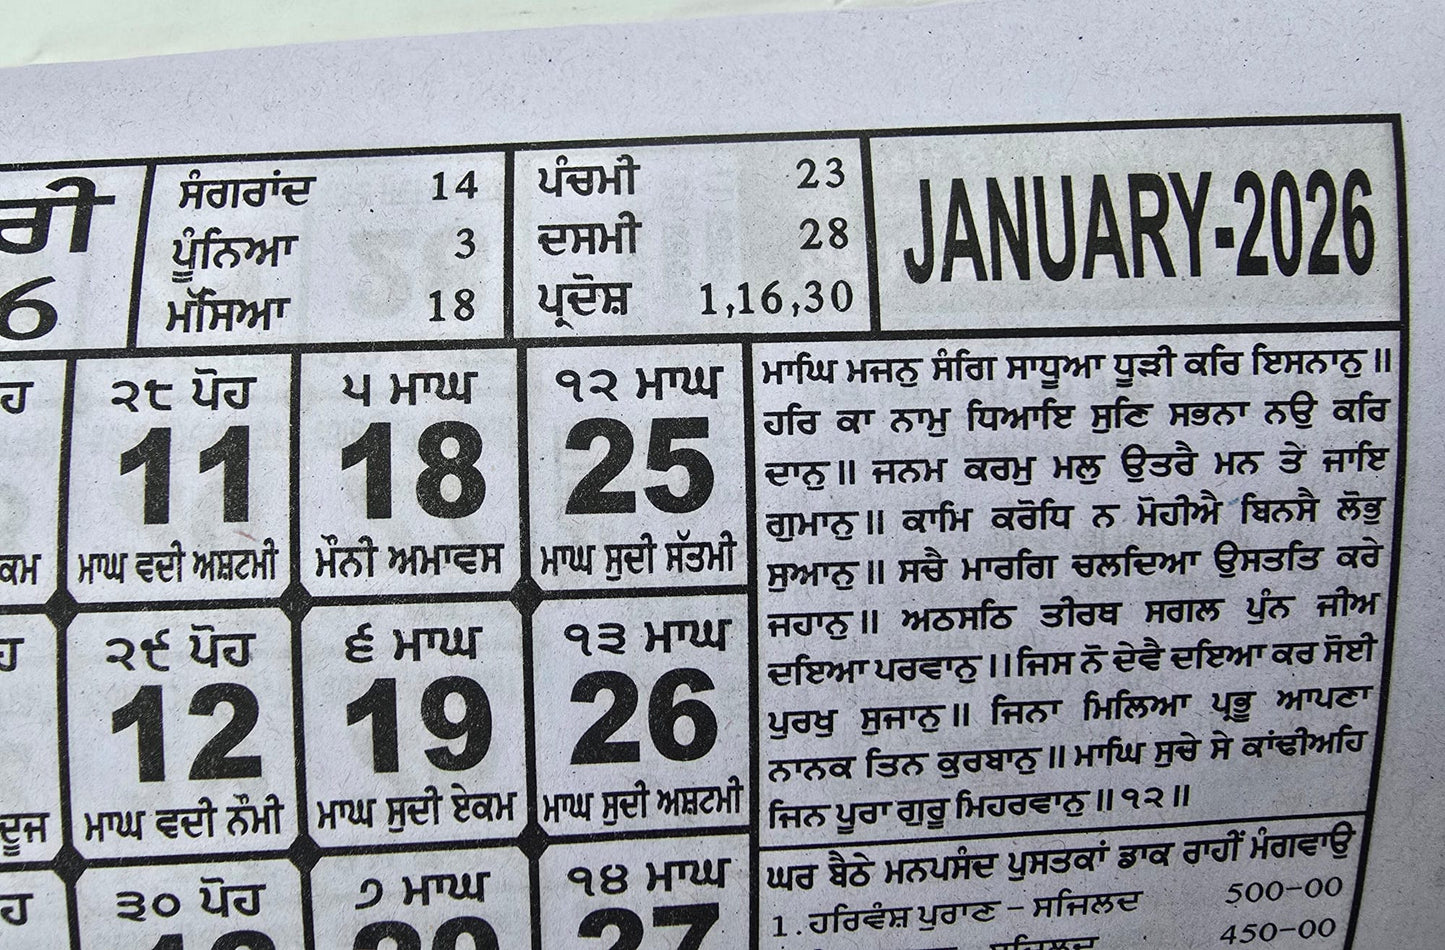 ਸੰਗਰਾਂਦ 14
ਪੂੰਨਿਆ 3
ਮੱਸਿਆ 18
ਪੰਚਮੀ 23
ਦਸਮੀ 28
ਪ੍ਰਦੋਸ਼ 1,16,30
JANUARY-2026
6
੨੮ ਪੋਹ
11
ਮਾਘ ਵਦੀ ਅਸ਼ਟਮੀ
੫ ਮਾਘ
18
ਮੌਨੀ ਅਮਾਵਸ
੧੨ ਮਾਘ
25
ਮਾਘ ਸੁਦੀ ਸੱਤਮੀ
੨੯ ਪੋਹ
12
ਮਾਘ ਵਦੀ ਨੌਮੀ
੬ ਮਾਘ
19
ਮਾਘ ਸੁਦੀ ਏਕਮ
੧੩ ਮਾਘ
26
ਮਾਘ ਸੁਦੀ ਅਸ਼ਟਮੀ
ਦੂਜ
੩੦ ਪੋਹ
੭ ਮਾਘ
20
੧੪ ਮਾਘ
27
ਮਾਘਿ ਮਜਨੁ ਸੰਗਿ ਸਾਧੂਆ ਧੂੜੀ ਕਰਿ ਇਸਨਾਨੁ॥
ਹਰਿ ਕਾ ਨਾਮੁ ਧਿਆਇ ਸੁਣਿ ਸਭਨਾ ਨਉ ਕਰਿ
ਦਾਨੁ॥ ਜਨਮ ਕਰਮੁ ਮਲੁ ਉਤਰੈ ਮਨ ਤੇ ਜਾਇ
ਗੁਮਾਨੁ॥ ਕਾਮਿ ਕਰੋਧਿ ਨ ਮੋਹੀਐ ਬਿਨਸੈ ਲੋਭੁ
ਸੁਆਨੁ॥ ਸਚੈ ਮਾਰਗਿ ਚਲਦਿਆ ਉਸਤਤਿ ਕਰੇ
ਜਹਾਨੁ॥ ਅਠਸਠਿ ਤੀਰਥ ਸਗਲ ਪੁੰਨ ਜੀਅ
ਦਇਆ ਪਰਵਾਨੁ॥ ਜਿਸ ਨੋ ਦੇਵੈ ਦਇਆ ਕਰ ਸੋਈ
ਪੁਰਖੁ ਸੁਜਾਨੁ॥ ਜਿਨਾ ਮਿਲਿਆ ਪ੍ਰਭੂ ਆਪਣਾ
ਨਾਨਕ ਤਿਨ ਕੁਰਬਾਨੁ॥ ਮਾਘਿ ਸੁਚੇ ਸੇ ਕਾਂਢੀਅਹਿ
ਜਿਨ ਪੂਰਾ ਗੁਰੂ ਮਿਹਰਵਾਨੁ॥੧੨॥
ਘਰ ਬੈਠੇ ਮਨਪਸੰਦ ਪੁਸਤਕਾਂ ਡਾਕ ਰਾਹੀਂ ਮੰਗਵਾਉ
1. ਹਰਿਵੰਸ਼ ਪੁਰਾਣ - ਸਜਿਲਦ 500-00
ਸਜਿਲਦ 450-00